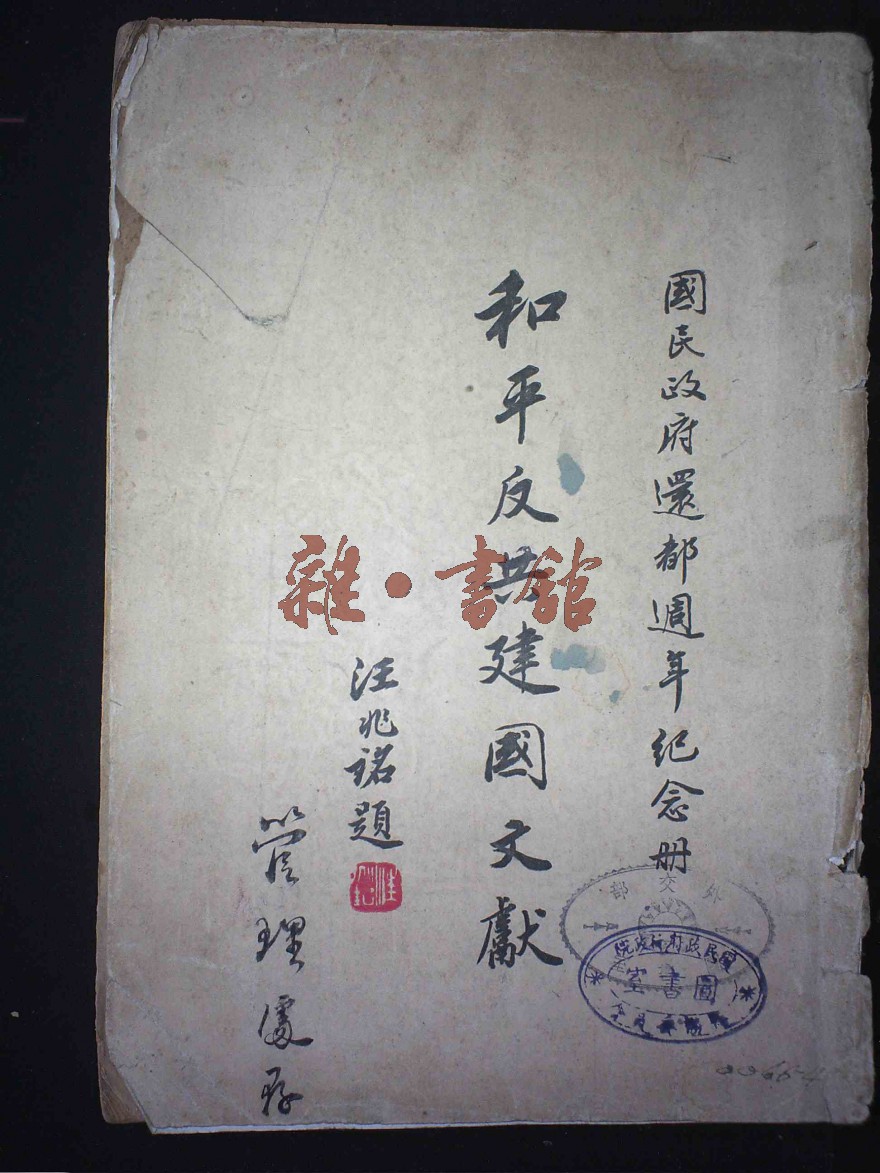 國民政府還都週年紀念册
和平反共建國文獻
汪兆銘題
管理處存
雜·書館
外交部
國民政府行政院
圖書室